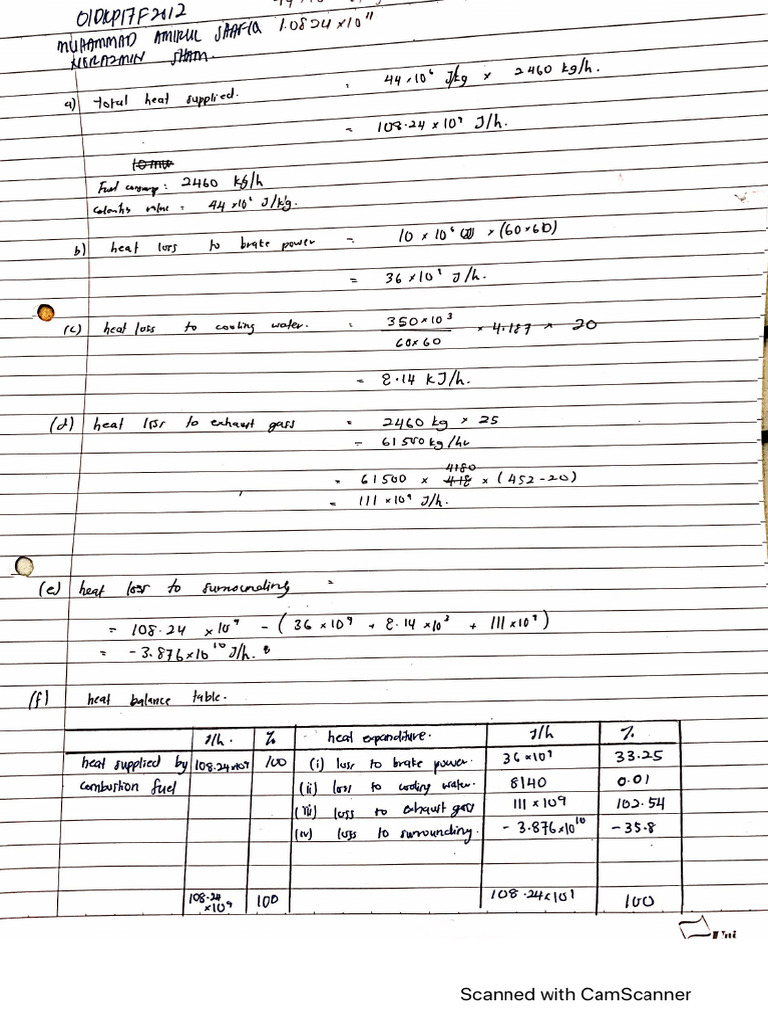 01DKP17F2012
MUHAMMAD AMIRUL SHAFIQ 1.0824 x 10¹¹
NORAZMIN SHAM.
a) total heat supplied. = 44 x 10⁶ J/kg x 2460 kg/h.
= 108.24 x 10⁹ J/h.
10 mw
Fuel consump: 2460 kg/h
Calorific value = 44 x 10⁶ J/kg.
b) heat loss to brake power = 10 x 10⁶ x (60x60)
= 36 x 10⁹ J/h.
(c) heat loss to cooling water. = 350 x 10³ / 60x60 x 4.187 x 20
= 8.14 kJ/h.
(d) heat loss to exhaust gass = 2460 kg x 25
= 61500 kg/hr
4180
= 61500 x 418 x (452-20)
= 111 x 10⁹ J/h.
(e) heat loss to surrounding =
= 108.24 x 10⁹ - (36 x 10⁹ + 8.14 x 10³ + 111 x 10⁹)
= -3.876 x 10¹⁰ J/h.
(f) heat balance table.
J/h. % heat expanditure. J/h %
heat supplied by 108.24x10⁹ 100 (i) loss to brake power. 36 x 10⁹ 33.25
combustion fuel (ii) loss to cooling water. 8140 0.01
(iii) loss to exhaust gas 111 x 109 102.54
(iv) loss to surrounding. -3.876x10¹⁰ -35.8
108.24 x10⁹ 100 108.24x10⁹ 100
Scanned with CamScanner